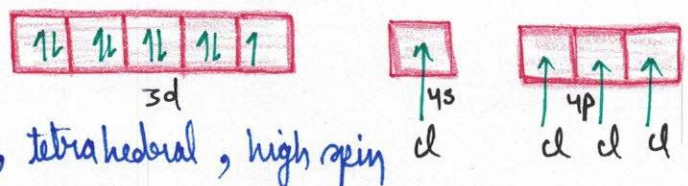 3d 4s 4p
, tetrahedral, high spin cl cl cl cl